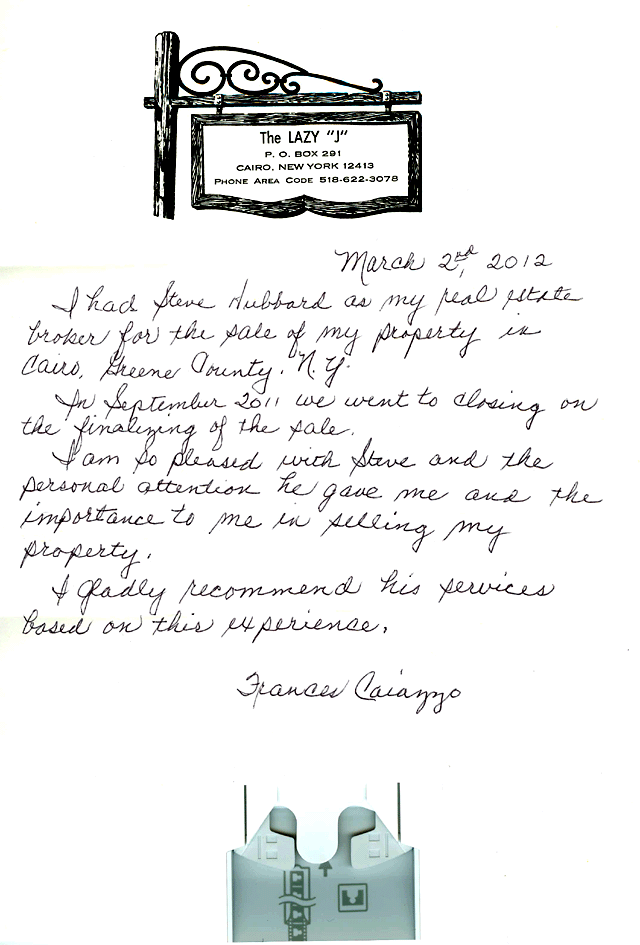 The LAZY "J"
P. O. BOX 291
CAIRO, NEW YORK 12413
PHONE AREA CODE 518-622-3078
March 2nd, 2012
I had Steve Hubbard as my real estate
broker for the sale of my property in
Cairo, Greene County. N.Y.
In September 2011 we went to closing on
the finalizing of the sale.
I am so pleased with Steve and the
personal attention he gave me and the
importance to me in selling my
property.
I gladly recommend his services
based on this experience.
Frances Caiazzo